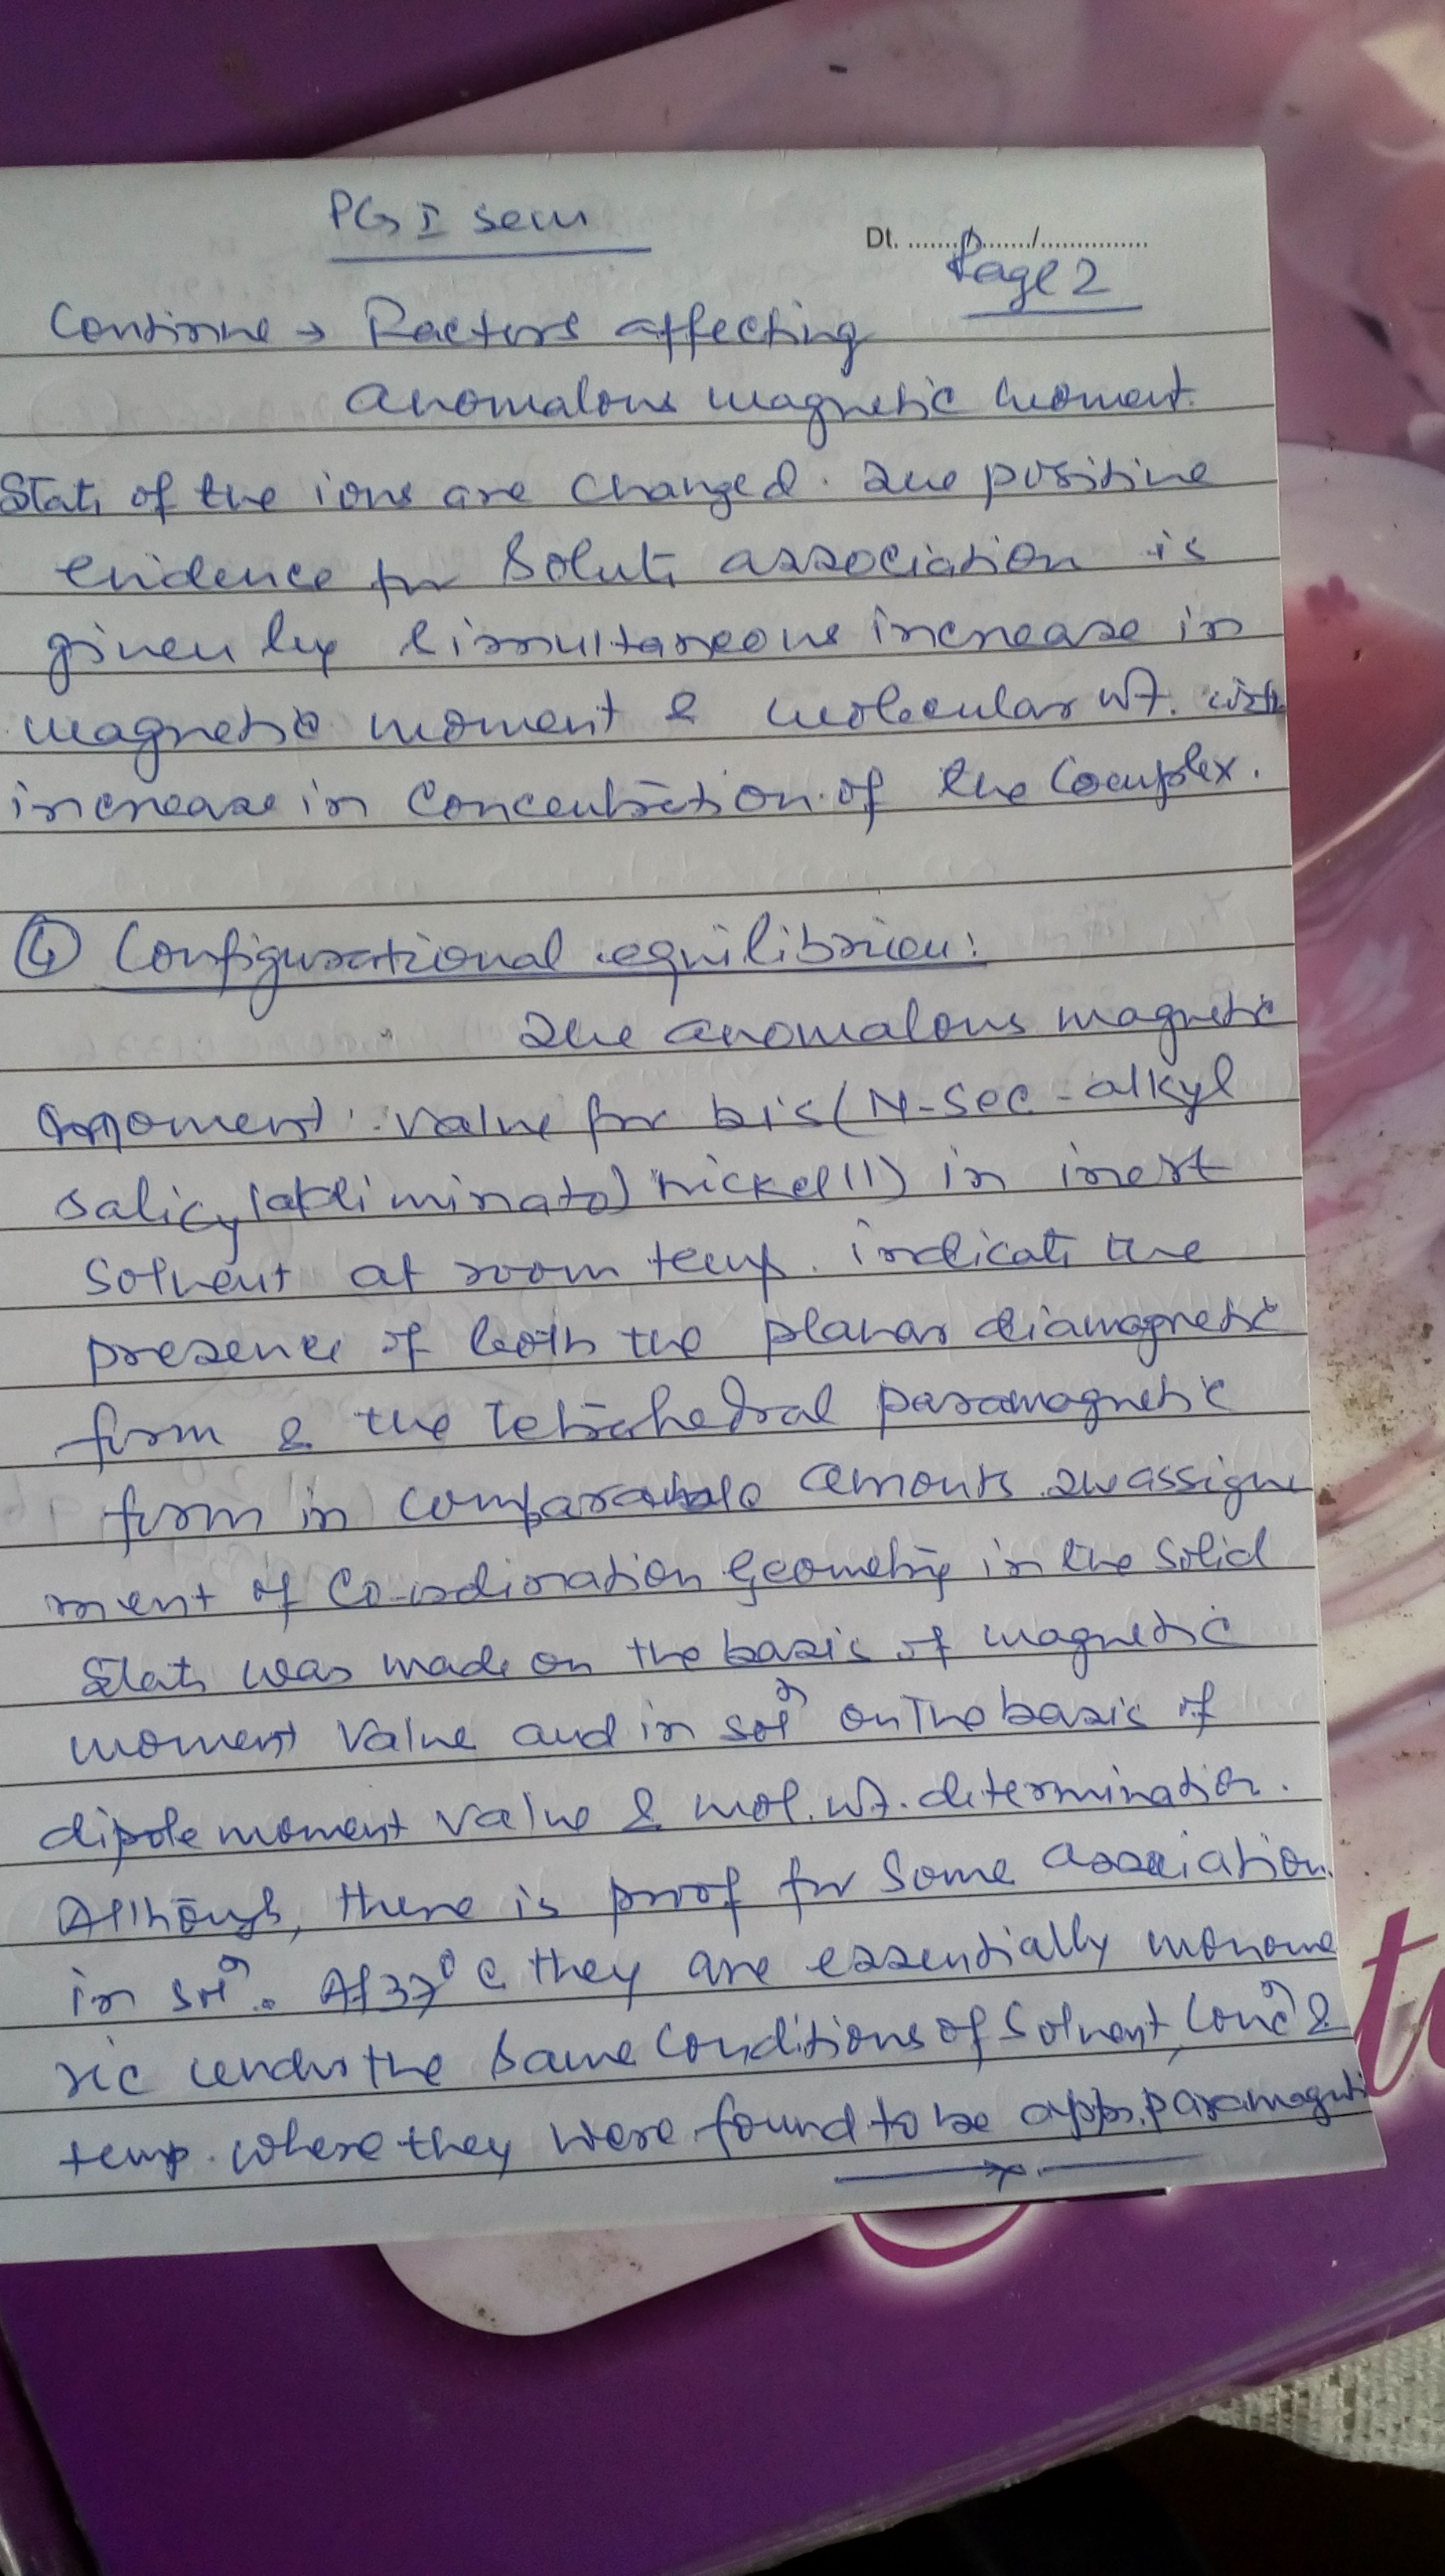 PG I sem
Dt. ......./......./...............
Page 2
Continue → Factors affecting
anomalous magnetic moment.
State of the ions are changed. The positive
evidence for Solute association is
given by simultaneous increase in
magnetic moment & molecular wt. with
increase in Concentration of the Complex.
④ Configurational equilibrium:
The anomalous magnetic
moment value for bis(N-Sec-alkyl
salicylaldiminato) nickel(II) in inert
Solvent at room temp. indicate the
presence of both the planar diamagnetic
form & the Tetrahedral paramagnetic
form in comparable amounts. The assign
ment of Co-ordination Geometry in the Solid
State was made on the basis of magnetic
moment Value and in solⁿ on The basis of
dipole moment value & mol. wt. determination.
Although, there is proof for some association
in solⁿ. At 37°C they are essentially monome
ric under the same conditions of Solvent, Concⁿ &
temp. where they were found to be appr. paramagneti
t